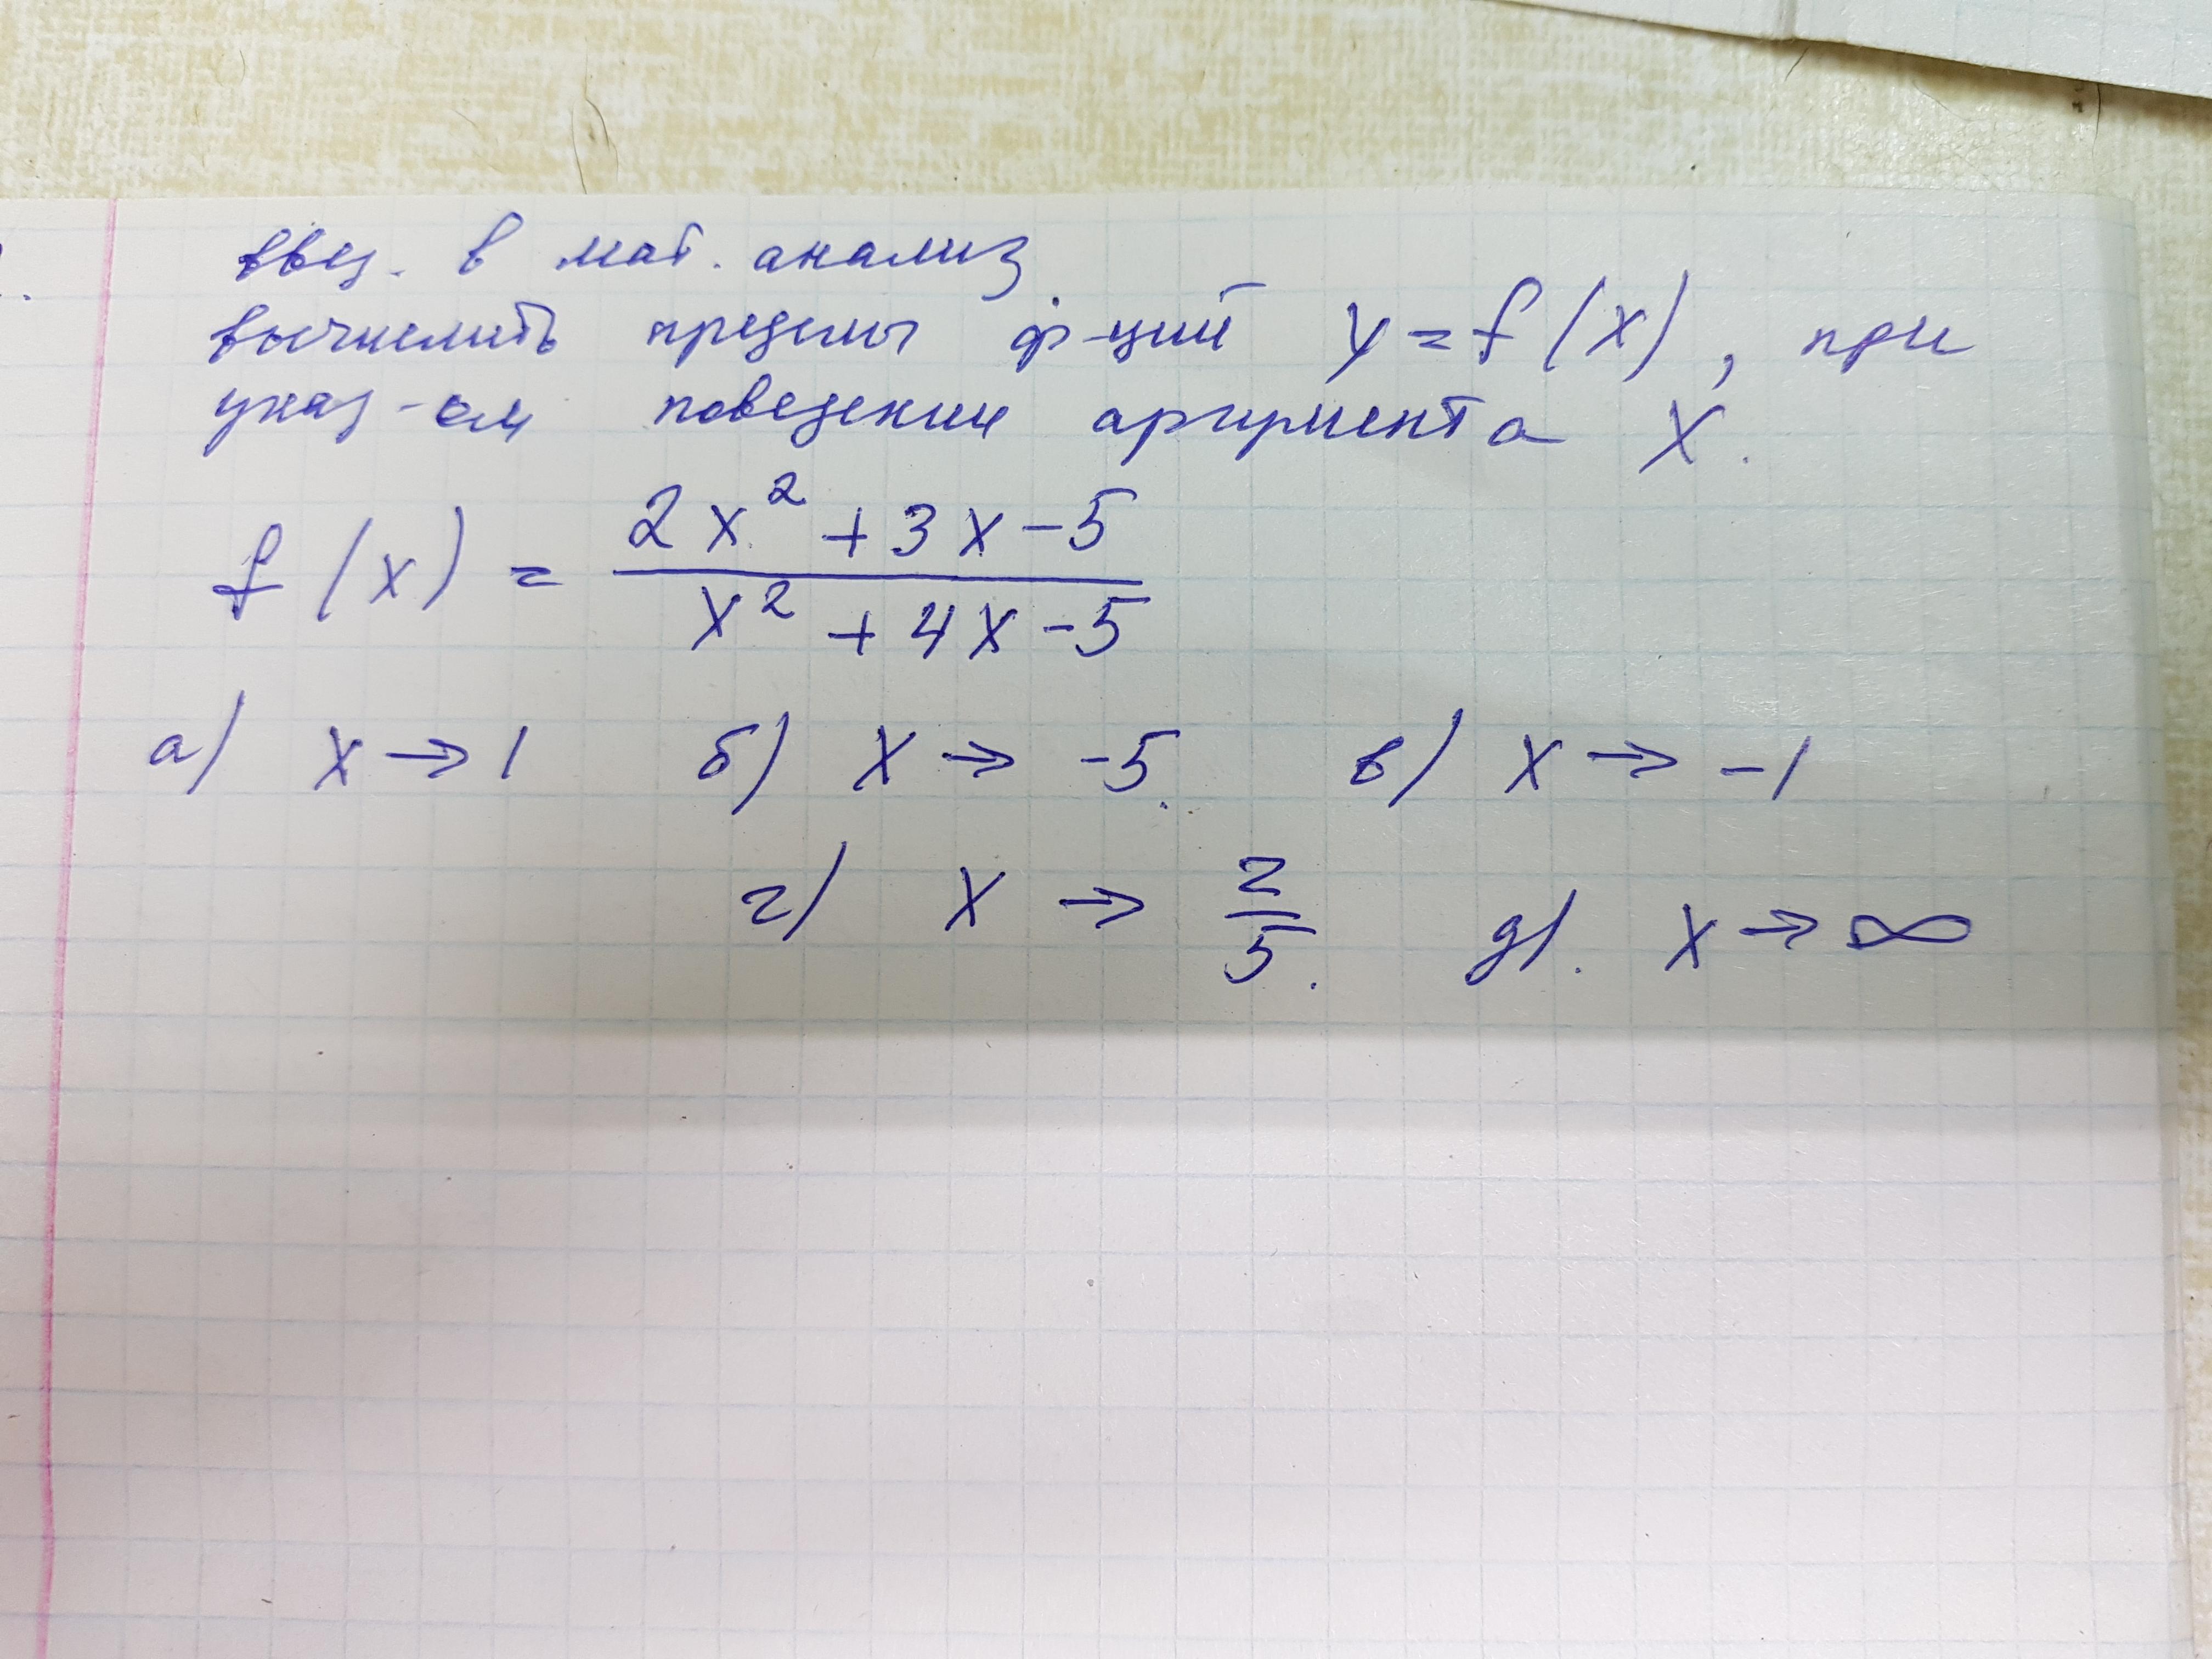 введ. в мат. анализ
вычислить пределы ф-ций y=f(x), при
указ-ом поведении аргумента X.
f(x) = (2x² + 3x - 5) / (x² + 4x - 5)
а) x → 1 б) x → -5. в) x → -1
г) x → 2/5. д). x → ∞